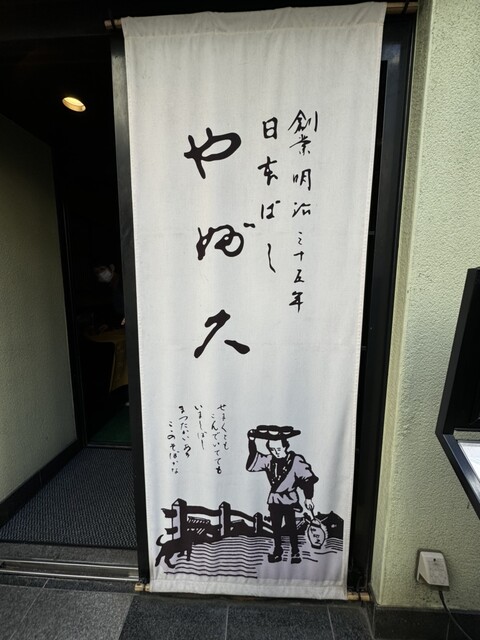 創業明治三十五年
日本ばし
やぶ久
せまくとも
こんでいてでも
いましばし
まつたかいある
このそばかな